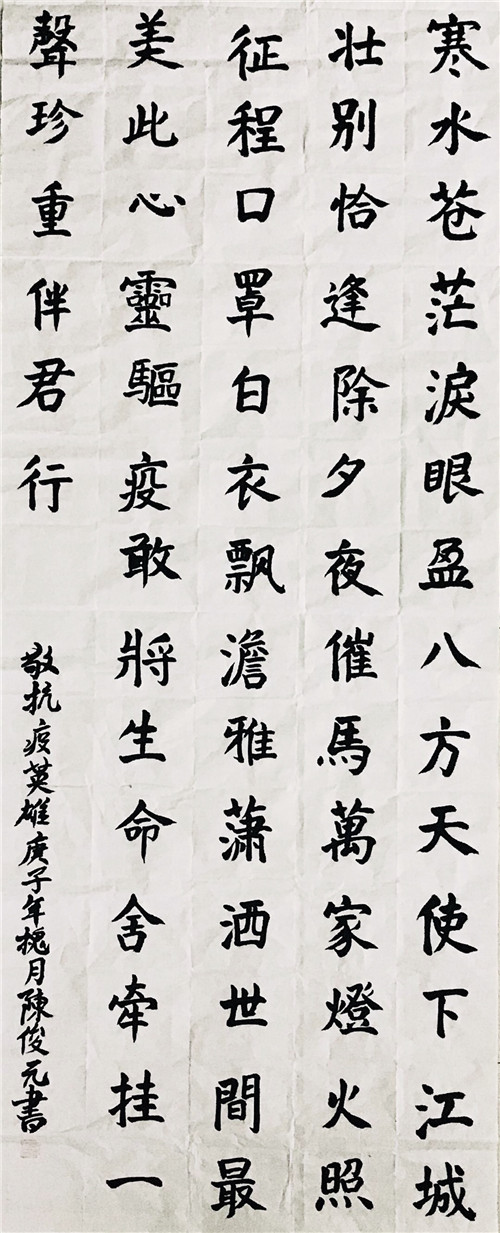 寒水苍茫淚眼盈八方天使下江城
壮别恰逢除夕夜催馬萬家燈火照
征程口罩白衣飘澹雅萧洒世間最
美此心靈驅疫敢將生命舍牵挂一
聲珍重伴君行
敬抗疫英雄庚子年槐月陳俊元書